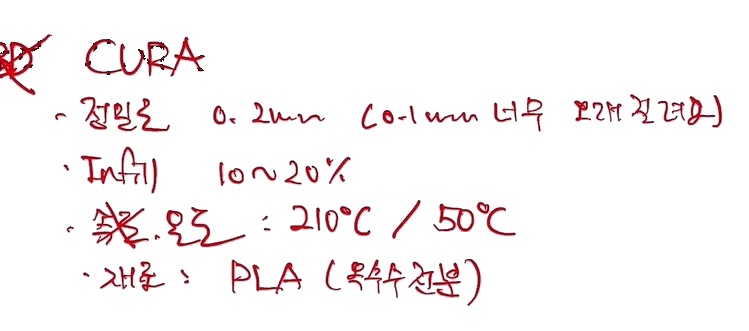 CURA
· 정밀도 0.2mm (0.1mm 너무 오래 걸려요)
· Infill 10~20%
· 온도 : 210℃ / 50℃
· 재료 : PLA (옥수수전분)